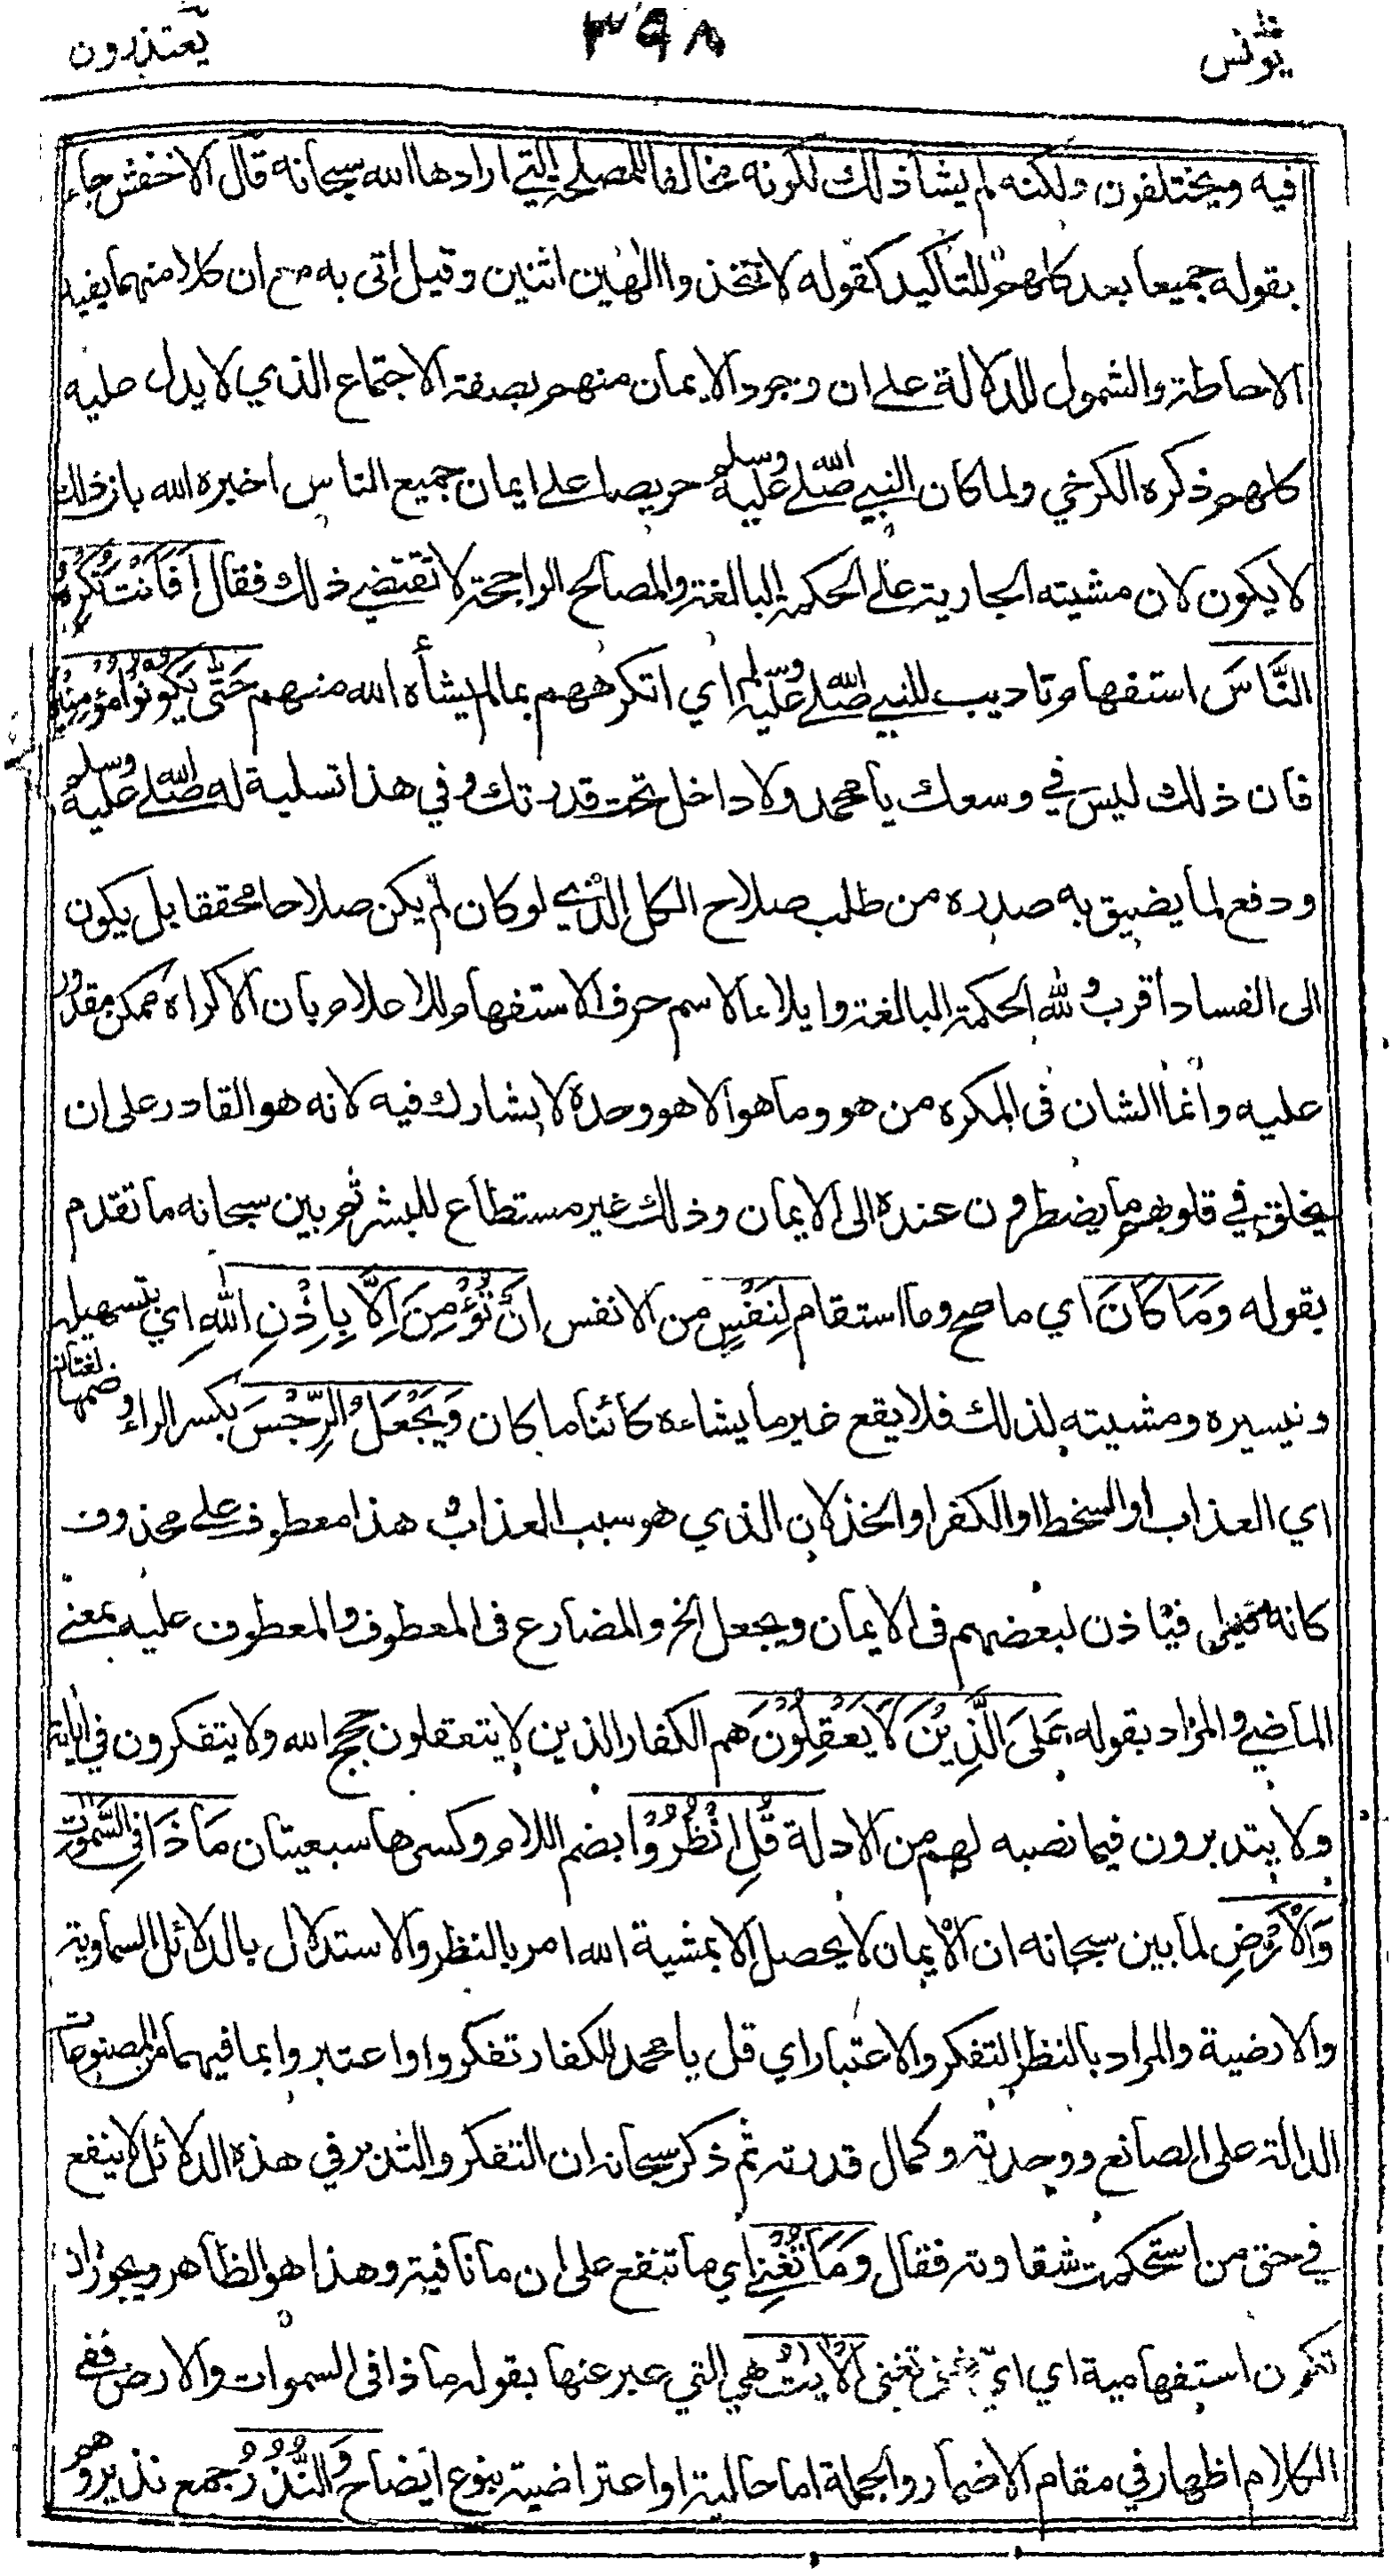 يونس ٣٩٨ يعتذرون
فيه ويختلفون ولكنه لم يشأ ذلك لكونه مخالفا للمصلحة التي ارادها الله سبحانه قال الاخفش جاء
بقوله جميعا بعد كلهم للتاكيد كقوله لا تتخذوا الٰهين اثنين وقيل اتى به مع ان كلا منهما يفيد
الاحاطة والشمول للدلالة على ان وجود الايمان منهم بصفة الاجتماع الذي لا يدل عليه
كلهم ذكره الكرخي ولما كان النبي صلى الله عليه وسلم حريصا على ايمان جميع الناس اخبره الله بان ذلك
لا يكون لان مشيته الجارية على الحكمة البالغة والمصالح الراجحة لا تقتضي ذلك فقال اَفَاَنْتَ تُكْرِهُ
النَّاسَ استفهام وتاديب للنبي صلى الله عليه وسلم اي اتكرههم بما لم يشأه الله منهم حَتّٰى يَكُوْنُوْا مُؤْمِنِيْنَ
فان ذلك ليس في وسعك يا محمد ولا داخل تحت قدرتك وفي هذا تسلية له صلى الله عليه وسلم
ودفع لما يضيق به صدره من طلب صلاح الكل الذي لو كان لم يكن صلاحا محققا بل يكون
الى الفساد اقرب ولله الحكمة البالغة وايلاء الاسم حرف الاستفهام للاعلام بان الاكراه ممكن مقدور
عليه وانما الشان فى المكره من هو وما هو الا هو وحده لا يشارك فيه لانه هو القادر على ان
يخلق في قلوبهم ما يضطرون عنده الى الايمان وذلك غير مستطاع للبشر ثم بين سبحانه ما تقدم
بقوله وَمَا كَانَ اي ما صح وما استقام لِنَفْسٍ من الانفس اَنْ تُؤْمِنَ اِلَّا بِاِذْنِ اللهِ اي بتسهيله
وتيسيره ومشيته لذلك فلا يقع غير ما يشاءه كائنا ما كان وَيَجْعَلُ الرِّجْسَ بكسر الراء وضمها لغتان
اي العذاب او السخط او الكفر او الخذلان الذي هو سبب العذاب هذا معطوف على محذوف
كانه قيل فياذن لبعضهم فى الايمان ويجعل الخ والمضارع فى المعطوف والمعطوف عليه بمعنى
الماضي والمراد بقوله عَلَى الَّذِيْنَ لَا يَعْقِلُوْنَ هم الكفار الذين لا يتعقلون حجج الله ولا يتفكرون في اياته
ولا يتدبرون فيما نصبه لهم من الادلة قُلِ انْظُرُوْا بضم اللام وكسرها سبعيتان مَاذَا فِي السَّمٰوٰتِ
وَالْاَرْضِ لما بين سبحانه ان الايمان لا يحصل الا بمشية الله امر بالنظر والاستدلال بالدلائل السماوية
والارضية والمراد بالنظر التفكر والاعتبار اي قل يا محمد للكفار تفكروا واعتبروا بما فيهما من المصنوعات
الدالة على الصانع ووحدته وكمال قدرته ثم ذكر سبحانه ان التفكر والتدبر في هذه الدلائل لا ينفع
في حق من استحكمت شقاوته فقال وَمَا تُغْنِي اي ما تنفع على ان ما نافية وهذا هو الظاهر ويجوز ان
تكون استفهامية اي اي تغنى الْاٰيٰتُ هي التي عبر عنها بقوله ماذا فى السموات والارض ففي
الكلام اظهار في مقام الاضمار والجملة اما حالية او اعتراضية بنوع ايضاح وَالنُّذُرُ جمع نذير وهم